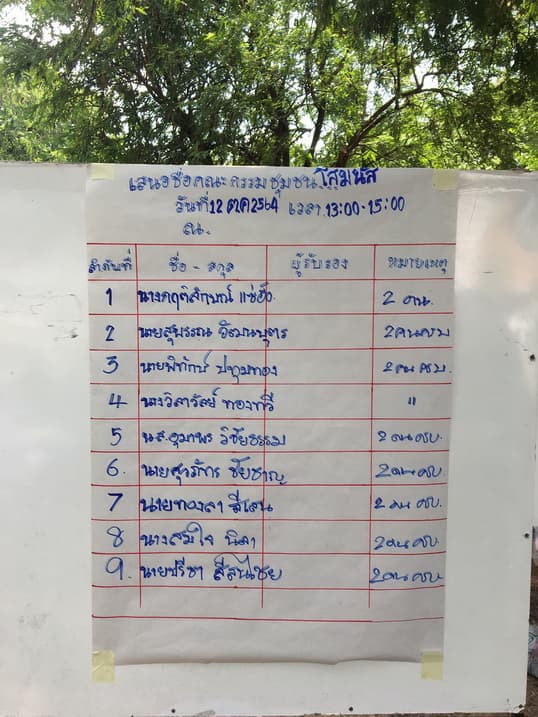 เสนอชื่อคณะกรรมชุมชน โสมนัส
วันที่ 12 ต.ค 2564 เวลา 13:00-15:00
ณ.
ลำดับที่ ชื่อ - สกุล ผู้รับรอง หมายเหตุ
1 แซ่อั้ว 2 คน.
2 นายสุพรรณ วัฒนบุตร 2 คนครบ
3 นายพิทักษ์ ปทุมทอง 2 คน ครบ.
4 นางวิลาวัลย์ ทองทวี "
5 น.ส.อุมาพร วิชัยธรรม 2 คน ครบ.
6. ชัยชาญ 2 คน ครบ.
7 นายทองลา สีเสน 2 คน ครบ.
8 นางสมใจ นิลา 2 คน ครบ.
9. นายปรีชา 2 คน ครบ.